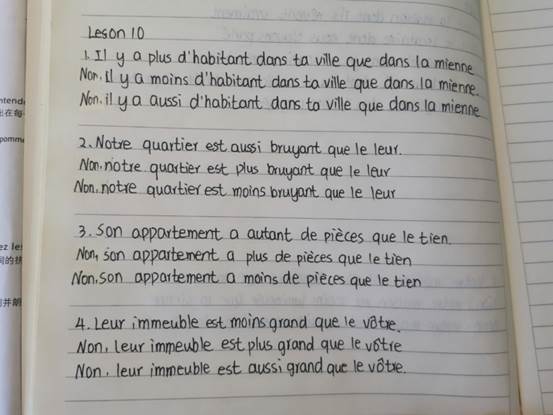 Leson 10
1. Il y a plus d'habitant dans ta ville que dans la mienne
Non, il y a moins d'habitant dans ta ville que dans la mienne.
Non, il y a aussi d'habitant dans ta ville que dans la mienne
2. Notre quartier est aussi bruyant que le leur.
Non, notre quartier est plus bruyant que le leur
Non, notre quartier est moins bruyant que le leur
3. Son appartement a autant de pièces que le tien.
Non, son appartement a plus de pièces que le tien
Non, son appartement a moins de pièces que le tien
4. Leur immeuble est moins grand que le vôtre.
Non, leur immeuble est plus grand que le vôtre
Non, leur immeuble est aussi grand que le vôtre.